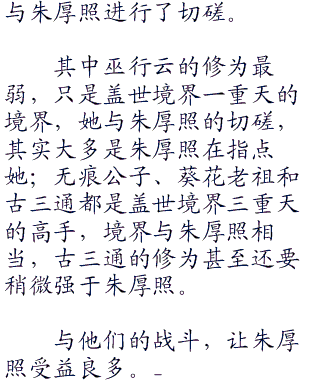 与朱厚照进行了切磋。
其中巫行云的修为最
弱，只是盖世境界一重天的
境界，她与朱厚照的切磋，
其实大多是朱厚照在指点
她；无痕公子、葵花老祖和
古三通都是盖世境界三重天
的高手，境界与朱厚照相
当，古三通的修为甚至还要
稍微强于朱厚照。
与他们的战斗，让朱厚
照受益良多。_